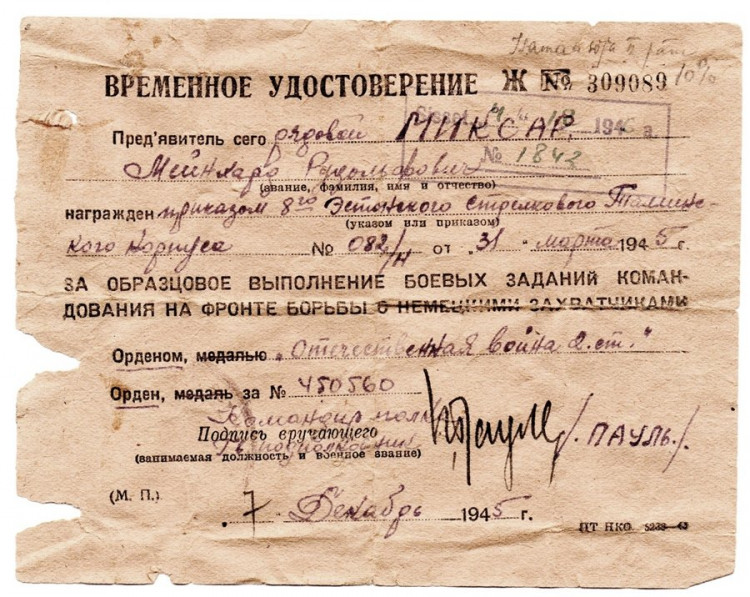 10%
ВРЕМЕННОЕ УДОСТОВЕРЕНИЕ Ж № 309089
18 1946 г.
№ 1843
Пред'явитель сего рядовой МИКСАР
Мейнхард
(звание, фамилия, имя и отчество)
награжден приказом 8го Эстонского стрелкового Таллинс-
кого Корпуса № 082/н от "31" марта 1945 г.
(указом или приказом)
ЗА ОБРАЗЦОВОЕ ВЫПОЛНЕНИЕ БОЕВЫХ ЗАДАНИЙ КОМАН-
ДОВАНИЯ НА ФРОНТЕ БОРЬБЫ С НЕМЕЦКИМИ ЗАХВАТЧИКАМИ
Орденом, медалью „Отечественная война 2 ст."
Орден, медаль за № 450560
Командир полка
Подпись вручающего /ПАУЛЬ/.
подполковник
(занимаемая должность и военное звание)
(М. П.)
7 Декабрь 1945 г.
ПТ НКО